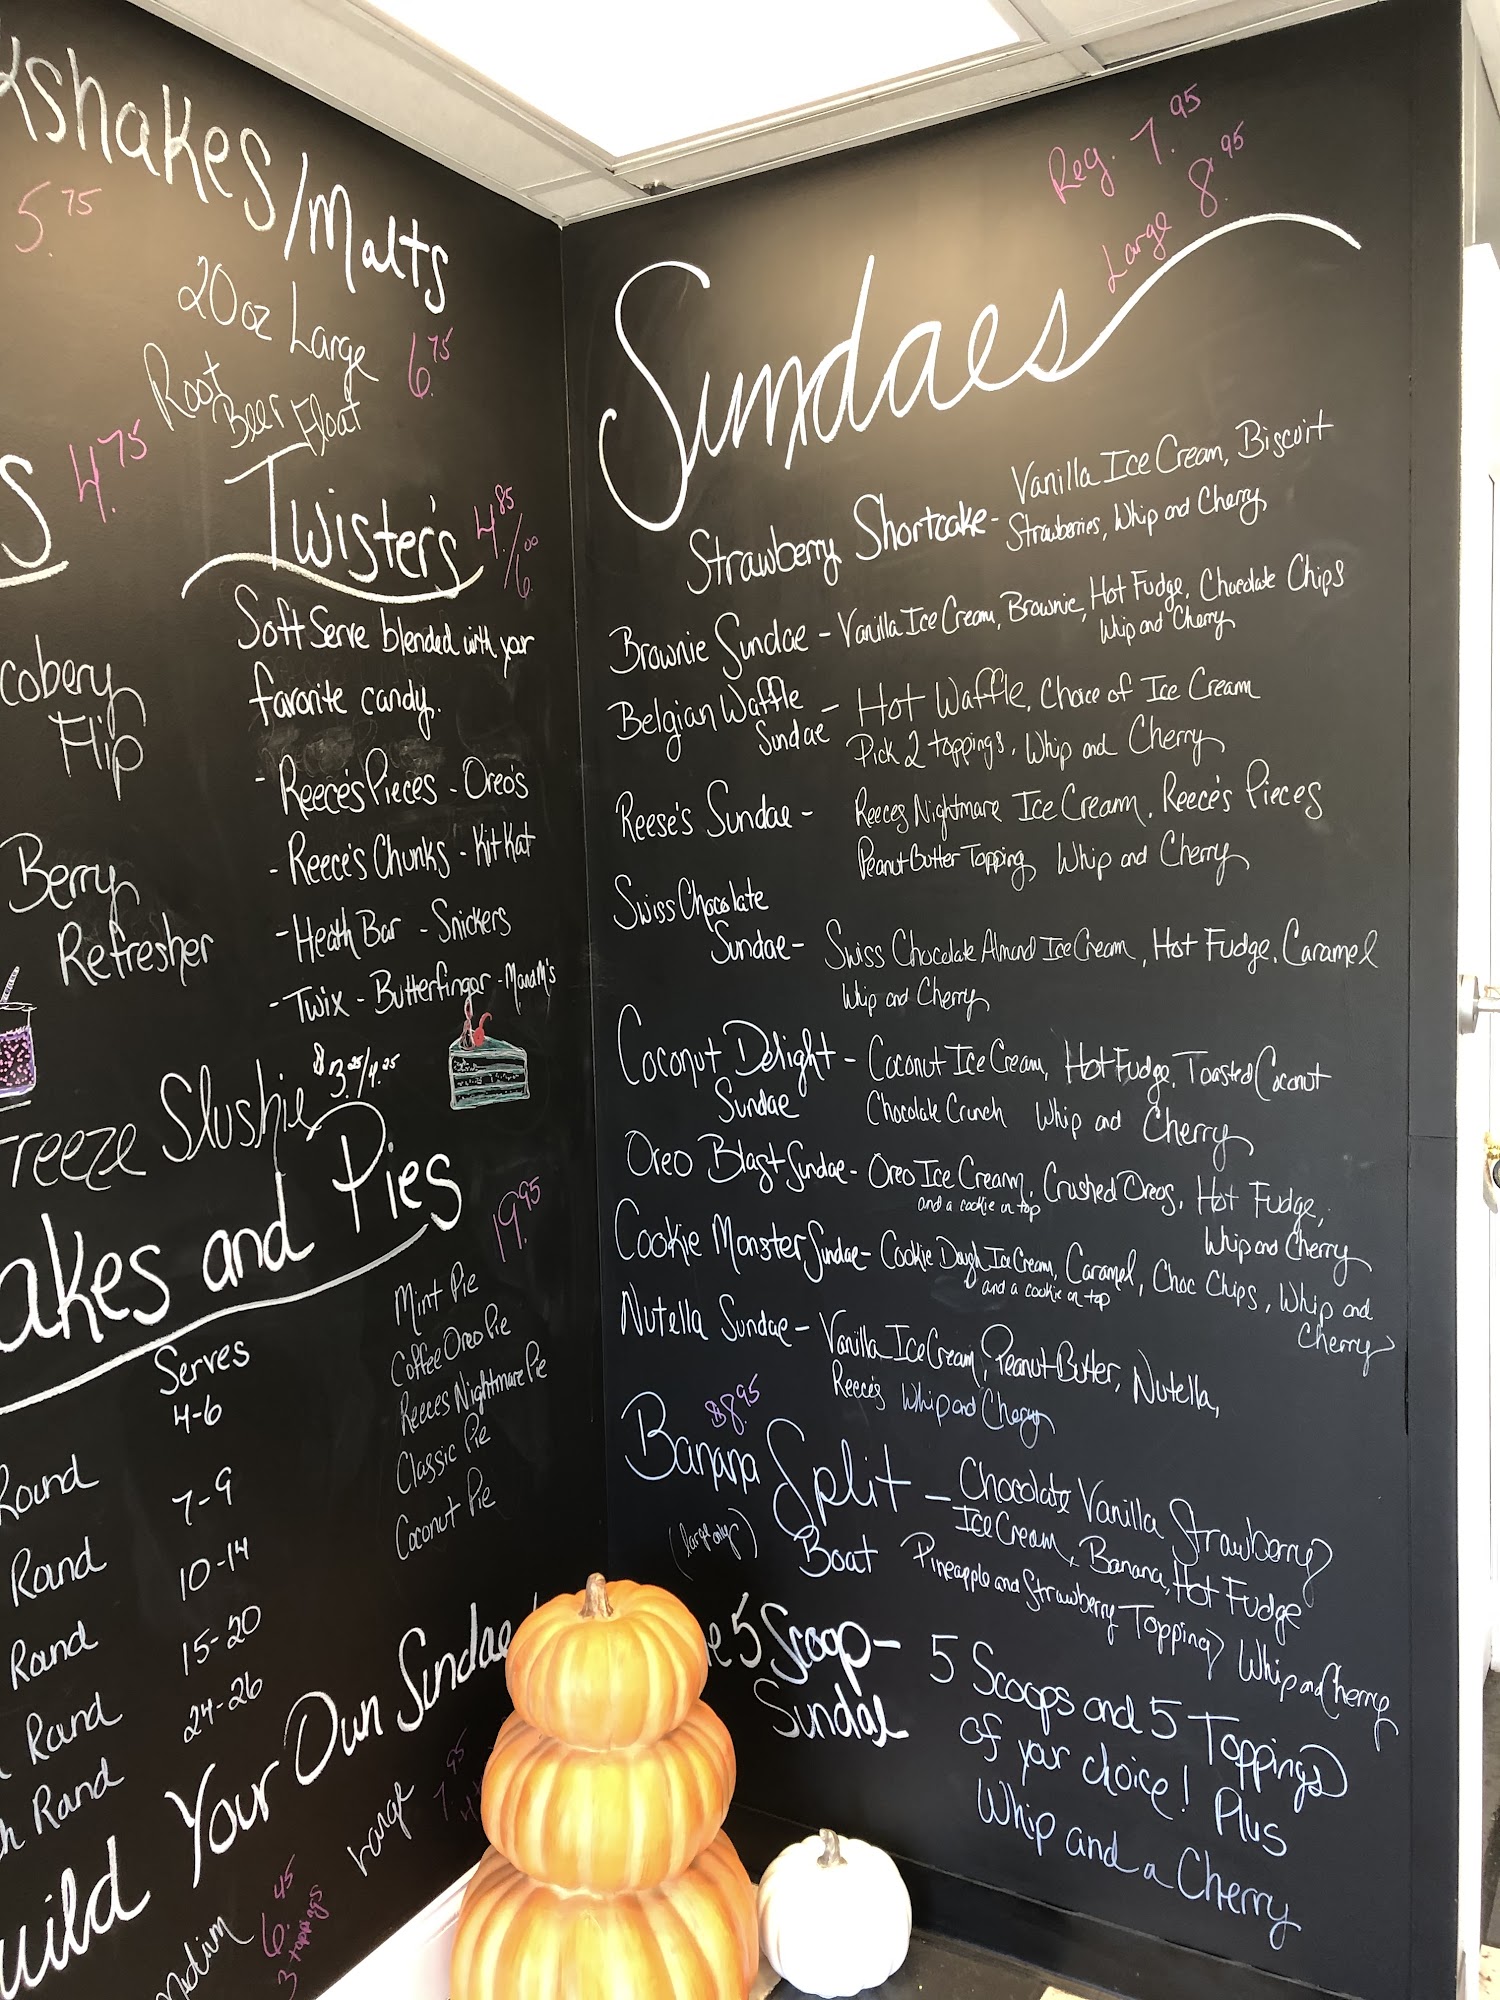 kshakes/Malts
5.75
20oz Large
6.75
Root
Beer Float
s 4.75
Twister's 4.85/6.00
Soft Serve blended with your
favorite candy.
- Reece's Pieces - Oreo's
- Reece's Chunks - KitKat
- Heath Bar - Snickers
- Twix - Butterfinger - MandM's
cobery
Flip
Berry
Refresher
Freeze Slushie $3.25/4.25
akes and Pies
19.95
Serves
4-6
Round 7-9
Round 10-14
Round 15-20
Round 24-26
h Round
Mint Pie
Coffee Oreo Pie
Reeces Nightmare Pie
Classic Pie
Coconut Pie
uild Your Own Sundae
Large 7.95
6.45
3 toppings
Reg. 7.95
Large 8.95
Sundaes
Strawberry Shortcake - Vanilla Ice Cream, Biscuit
Strawberries, Whip and Cherry
Brownie Sundae - Vanilla Ice Cream, Brownie, Hot Fudge, Chocolate Chips
Whip and Cherry
Belgian Waffle
Sundae - Hot Waffle, Choice of Ice Cream
Pick 2 toppings, Whip and Cherry
Reese's Sundae - Reeces Nightmare Ice Cream, Reece's Pieces
Peanut Butter Topping Whip and Cherry
Swiss Chocolate
Sundae - Swiss Chocolate Almond Ice Cream, Hot Fudge, Caramel
Whip and Cherry
Coconut Delight
Sundae - Coconut Ice Cream, Hot Fudge, Toasted Coconut
Chocolate Crunch Whip and Cherry
Oreo Blast Sundae - Oreo Ice Cream, Crushed Oreos, Hot Fudge,
and a cookie on top
Whip and Cherry
Cookie Monster Sundae - Cookie Dough Ice Cream, Caramel, Choc Chips, Whip and
and a cookie on top
Cherry
Nutella Sundae - Vanilla Ice Cream, Peanut Butter, Nutella,
Reece's Whip and Cherry
$8.95
Banana Split - Chocolate Vanilla Strawberry
(large only) Boat
Ice Cream, Banana, Hot Fudge
Pineapple and Strawberry Topping Whip and Cherry
5 Scoop -
Sundae
5 Scoops and 5 Toppings
of your choice! Plus
Whip and a Cherry